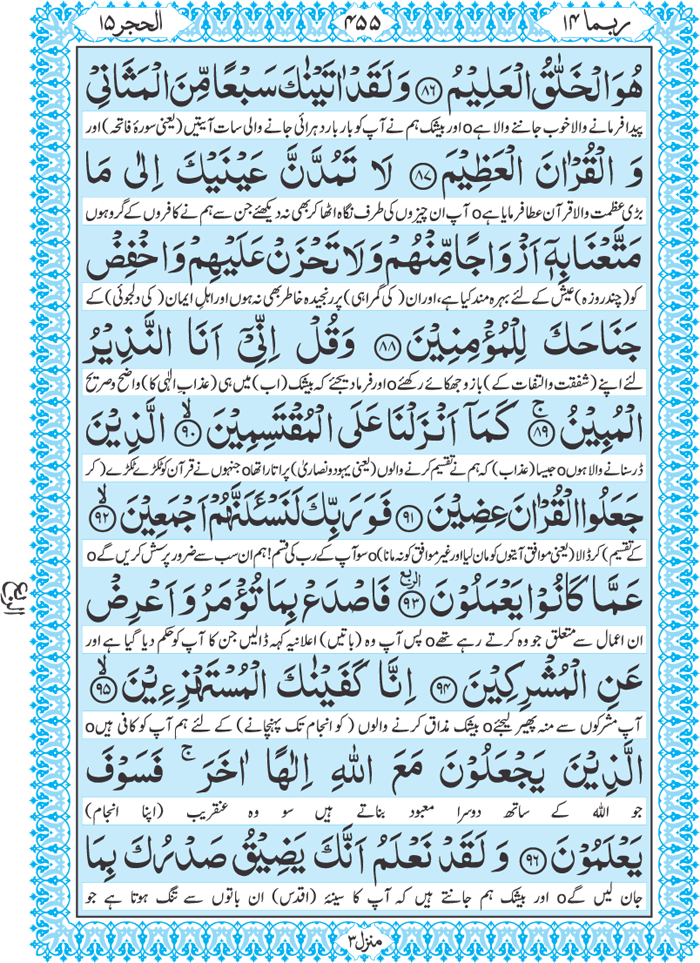 ربما ۱۴
۴۵۵
الحجر ۱۵
هُوَ الْخَلّٰقُ الْعَلِیْمُ ﴿۸۶﴾ وَ لَقَدْ اٰتَیْنٰكَ سَبْعًا مِّنَ الْمَثَانِیْ
پیدا فرمانے والا خوب جاننے والا ہے o اور بیشک ہم نے آپ کو بار بار دہرائی جانے والی سات آیتیں (یعنی سورۂ فاتحہ) اور
وَ الْقُرْاٰنَ الْعَظِیْمَ ﴿۸۷﴾ لَا تَمُدَّنَّ عَیْنَیْكَ اِلٰی مَا
بڑی عظمت والا قرآن عطا فرمایا ہے o آپ ان چیزوں کی طرف نگاہ اٹھا کر بھی نہ دیکھئے جن سے ہم نے کافروں کے گروہوں
مَتَّعْنَا بِهٖۤ اَزْوَاجًا مِّنْهُمْ وَ لَا تَحْزَنْ عَلَیْهِمْ وَ اخْفِضْ
کو (چند روزہ) عیش کے لئے بہرہ مند کیا ہے، اور ان (کی گمراہی) پر رنجیدہ خاطر بھی نہ ہوں اور اہلِ ایمان (کی دلجوئی) کے
جَنَاحَكَ لِلْمُؤْمِنِیْنَ ﴿۸۸﴾ وَ قُلْ اِنِّیْۤ اَنَا النَّذِیْرُ
لئے اپنے (شفقت و التفات کے) بازو جھکائے رکھئے o اور فرما دیجئے کہ بیشک (اب) میں ہی (عذابِ الٰہی کا) واضح و صریح
الْمُبِیْنُ ﴿۸۹﴾ۚ كَمَاۤ اَنْزَلْنَا عَلَی الْمُقْتَسِمِیْنَ ﴿۹۰﴾ۙ الَّذِیْنَ
ڈر سنانے والا ہوں o جیسا (عذاب) کہ ہم نے تقسیم کرنے والوں (یعنی یہود و نصاریٰ) پر اتارا تھا o جنہوں نے قرآن کو ٹکڑے ٹکڑے (کر
جَعَلُوا الْقُرْاٰنَ عِضِیْنَ ﴿۹۱﴾ فَوَ رَبِّكَ لَنَسْـَٔلَنَّهُمْ اَجْمَعِیْنَ ﴿۹۲﴾ۙ
کے تقسیم) کر ڈالا (یعنی موافق آیتوں کو مان لیا اور غیر موافق کو نہ مانا) o سو آپ کے رب کی قسم! ہم ان سب سے ضرور پرسش کریں گے o
عَمَّا كَانُوْا یَعْمَلُوْنَ ﴿۹۳﴾ الربع فَاصْدَعْ بِمَا تُؤْمَرُ وَ اَعْرِضْ
الربع
ان اعمال سے متعلق جو وہ کرتے رہے تھے o پس آپ وہ (باتیں) اعلانیہ کہہ ڈالیں جن کا آپ کو حکم دیا گیا ہے اور
عَنِ الْمُشْرِكِیْنَ ﴿۹۴﴾ اِنَّا كَفَیْنٰكَ الْمُسْتَهْزِءِیْنَ ﴿۹۵﴾ۙ
آپ مشرکوں سے منہ پھیر لیجئے o بیشک مذاق کرنے والوں (کو انجام تک پہنچانے) کے لئے ہم آپ کو کافی ہیں o
الَّذِیْنَ یَجْعَلُوْنَ مَعَ اللّٰهِ اِلٰهًا اٰخَرَ ۚ فَسَوْفَ
جو اللہ کے ساتھ دوسرا معبود بناتے ہیں سو وہ عنقریب (اپنا انجام)
یَعْلَمُوْنَ ﴿۹۶﴾ وَ لَقَدْ نَعْلَمُ اَنَّكَ یَضِیْقُ صَدْرُكَ بِمَا
جان لیں گے o اور بیشک ہم جانتے ہیں کہ آپ کا سینۂ (اقدس) ان باتوں سے تنگ ہوتا ہے جو
منزل ۳